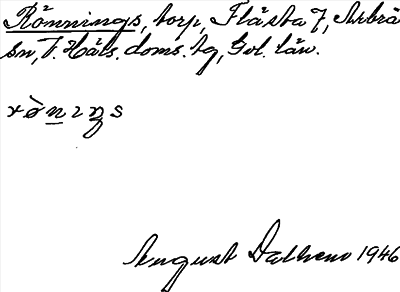 Römnings, torp, Flästa 7, Arbrå
sn, V. Häls. doms. tg, Gvl. län.
rò̀nıŋs
August Dalhem 1946